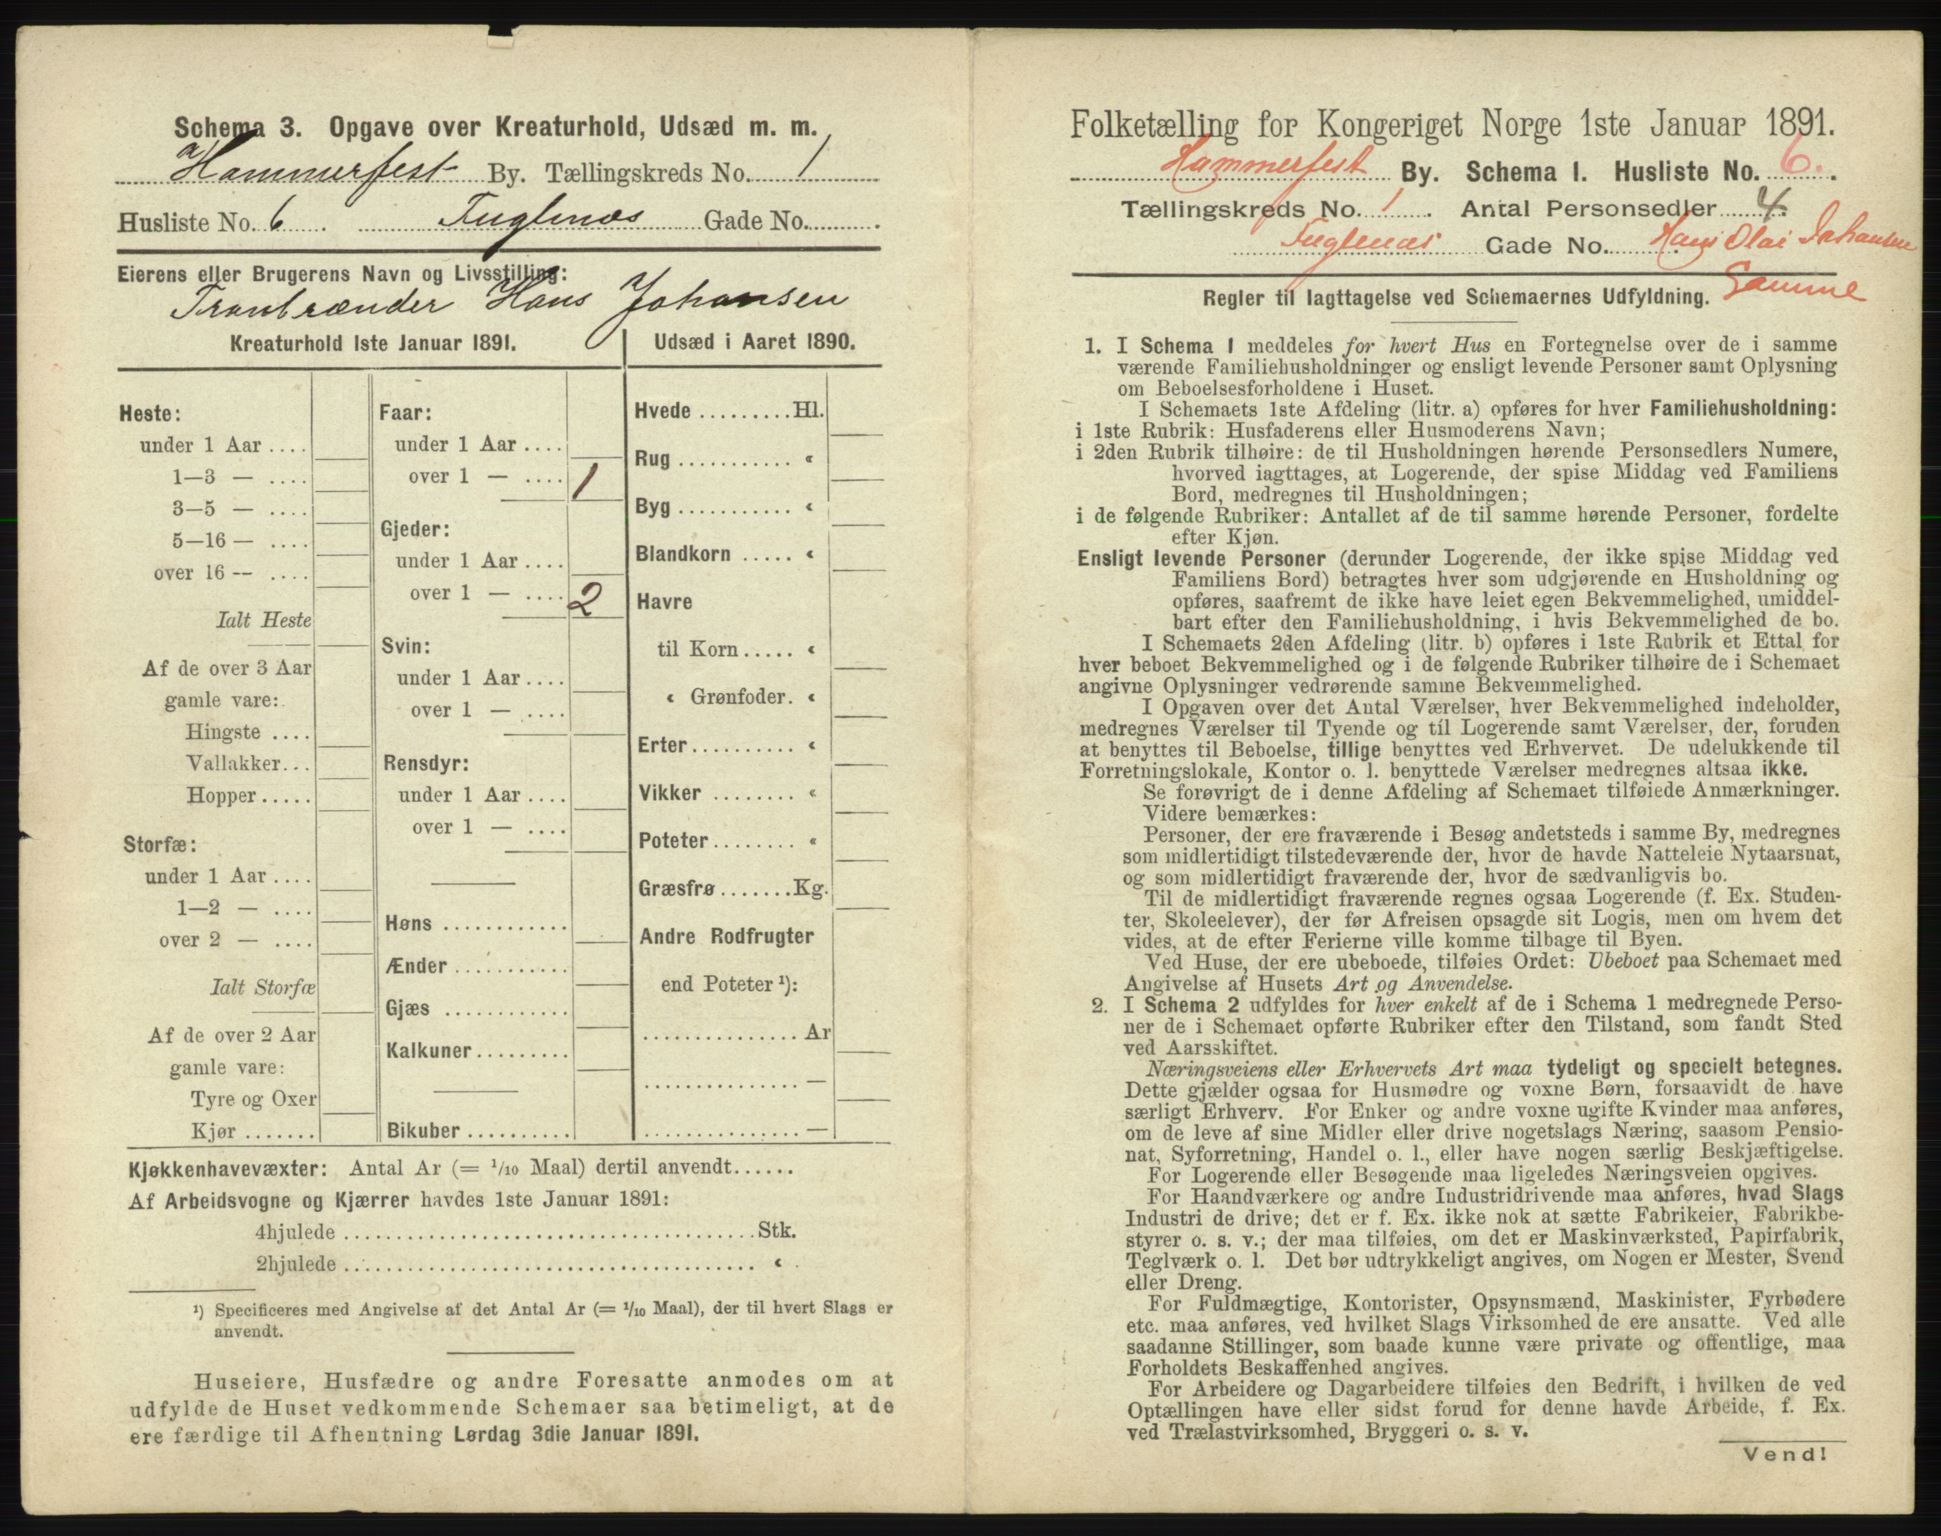 Schema 3. Opgave over Kreaturhold, Udsæd m. m.
Hammerfest By. Tællingskreds No. 1
Husliste No. 6 Fuglenæs Gade No.
Eierens eller Brugerens Navn og Livsstilling:
Tranbrænder Hans Johansen
Kreaturhold 1ste Januar 1891.
Heste:
under 1 Aar ....
1—3 — ....
3—5 — ....
5—16 — ....
over 16 — ....
Ialt Heste
Af de over 3 Aar
gamle vare:
Hingste ....
Vallakker...
Hopper.....
Storfæ:
under 1 Aar ....
1—2 — ....
over 2 — ....
Ialt Storfæ
Af de over 2 Aar
gamle vare:
Tyre og Oxer
Kjør .......
Faar:
under 1 Aar ....
over 1 — .... 1
Gjeder:
under 1 Aar ....
over 1 — .... 2
Svin:
under 1 Aar ....
over 1 — ....
Rensdyr:
under 1 Aar ....
over 1 — ....
Høns ............
Ænder ...........
Gjæs ............
Kalkuner.........
Bikuber ..........
Udsæd i Aaret 1890.
Hvede .........Hl.
Rug ........... «
Byg ........... «
Blandkorn ..... «
Havre
til Korn ..... «
« Grønfoder. «
Erter.......... «
Vikker ........ «
Poteter........ «
Græsfrø .......Kg.
Andre Rodfrugter
end Poteter ¹):
............... Ar
............... —
............... —
Kjøkkenhavevæxter: Antal Ar (= 1/10 Maal) dertil anvendt......
Af Arbeidsvogne og Kjærrer havdes 1ste Januar 1891:
4hjulede ....................................... Stk.
2hjulede ....................................... «
¹) Specificeres med Angivelse af det Antal Ar (= 1/10 Maal), der til hvert Slags er
anvendt.
Huseiere, Husfædre og andre Foresatte anmodes om at
udfylde de Huset vedkommende Schemaer saa betimeligt, at de
ere færdige til Afhentning Lørdag 3die Januar 1891.
Folketælling for Kongeriget Norge 1ste Januar 1891.
Hammerfest By. Schema I. Husliste No. 6.
Tællingskreds No. 1. Antal Personsedler 4.
Fuglenæs Gade No. Hans Olai Johansen
Samme
Regler til Iagttagelse ved Schemaernes Udfyldning.
1. I Schema 1 meddeles for hvert Hus en Fortegnelse over de i samme
værende Familiehusholdninger og ensligt levende Personer samt Oplysning
om Beboelsesforholdene i Huset.
I Schemaets 1ste Afdeling (litr. a) opføres for hver Familiehusholdning:
i 1ste Rubrik: Husfaderens eller Husmoderens Navn;
i 2den Rubrik tilhøire: de til Husholdningen hørende Personsedlers Numere,
hvorved iagttages, at Logerende, der spise Middag ved Familiens
Bord, medregnes til Husholdningen;
i de følgende Rubriker: Antallet af de til samme hørende Personer, fordelte
efter Kjøn.
Ensligt levende Personer (derunder Logerende, der ikke spise Middag ved
Familiens Bord) betragtes hver som udgjørende en Husholdning og
opføres, saafremt de ikke have leiet egen Bekvemmelighed, umiddel-
bart efter den Familiehusholdning, i hvis Bekvemmelighed de bo.
I Schemaets 2den Afdeling (litr. b) opføres i 1ste Rubrik et Ettal for
hver beboet Bekvemmelighed og i de følgende Rubriker tilhøire de i Schemaet
angivne Oplysninger vedrørende samme Bekvemmelighed.
I Opgaven over det Antal Værelser, hver Bekvemmelighed indeholder,
medregnes Værelser til Tyende og til Logerende samt Værelser, der, foruden
at benyttes til Beboelse, tillige benyttes ved Erhvervet. De udelukkende til
Forretningslokale, Kontor o. l. benyttede Værelser medregnes altsaa ikke.
Se forøvrigt de i denne Afdeling af Schemaet tilføiede Anmærkninger.
Videre bemærkes:
Personer, der ere fraværende i Besøg andetsteds i samme By, medregnes
som midlertidigt tilstedeværende der, hvor de havde Natteleie Nytaarsnat,
og som midlertidigt fraværende der, hvor de sædvanligvis bo.
Til de midlertidigt fraværende regnes ogsaa Logerende (f. Ex. Studen-
ter, Skoleelever), der før Afreisen opsagde sit Logis, men om hvem det
vides, at de efter Ferierne ville komme tilbage til Byen.
Ved Huse, der ere ubeboede, tilføies Ordet: Ubeboet paa Schemaet med
Angivelse af Husets Art og Anvendelse.
2. I Schema 2 udfyldes for hver enkelt af de i Schema 1 medregnede Perso-
ner de i Schemaet opførte Rubriker efter den Tilstand, som fandt Sted
ved Aarsskiftet.
Næringsveiens eller Erhvervets Art maa tydeligt og specielt betegnes.
Dette gjælder ogsaa for Husmødre og voxne Børn, forsaavidt de have
særligt Erhverv. For Enker og andre voxne ugifte Kvinder maa anføres,
om de leve af sine Midler eller drive nogetslags Næring, saasom Pensio-
nat, Syforretning, Handel o. l., eller have nogen særlig Beskjæftigelse.
For Logerende eller Besøgende maa ligeledes Næringsveien opgives.
For Haandværkere og andre Industridrivende maa anføres, hvad Slags
Industri de drive; det er f. Ex. ikke nok at sætte Fabrikeier, Fabrikbe-
styrer o. s. v.; der maa tilføies, om det er Maskinværksted, Papirfabrik,
Teglværk o. l. Det bør udtrykkeligt angives, om Nogen er Mester, Svend
eller Dreng.
For Fuldmægtige, Kontorister, Opsynsmænd, Maskinister, Fyrbødere
etc. maa anføres, ved hvilket Slags Virksomhed de ere ansatte. Ved alle
saadanne Stillinger, som baade kunne være private og offentlige, maa
Forholdets Beskaffenhed angives.
For Arbeidere og Dagarbeidere tilføies den Bedrift, i hvilken de ved
Optællingen have eller sidst forud for denne havde Arbeide, f. Ex.
ved Trælastvirksomhed, Bryggeri o. s. v.
Vend!